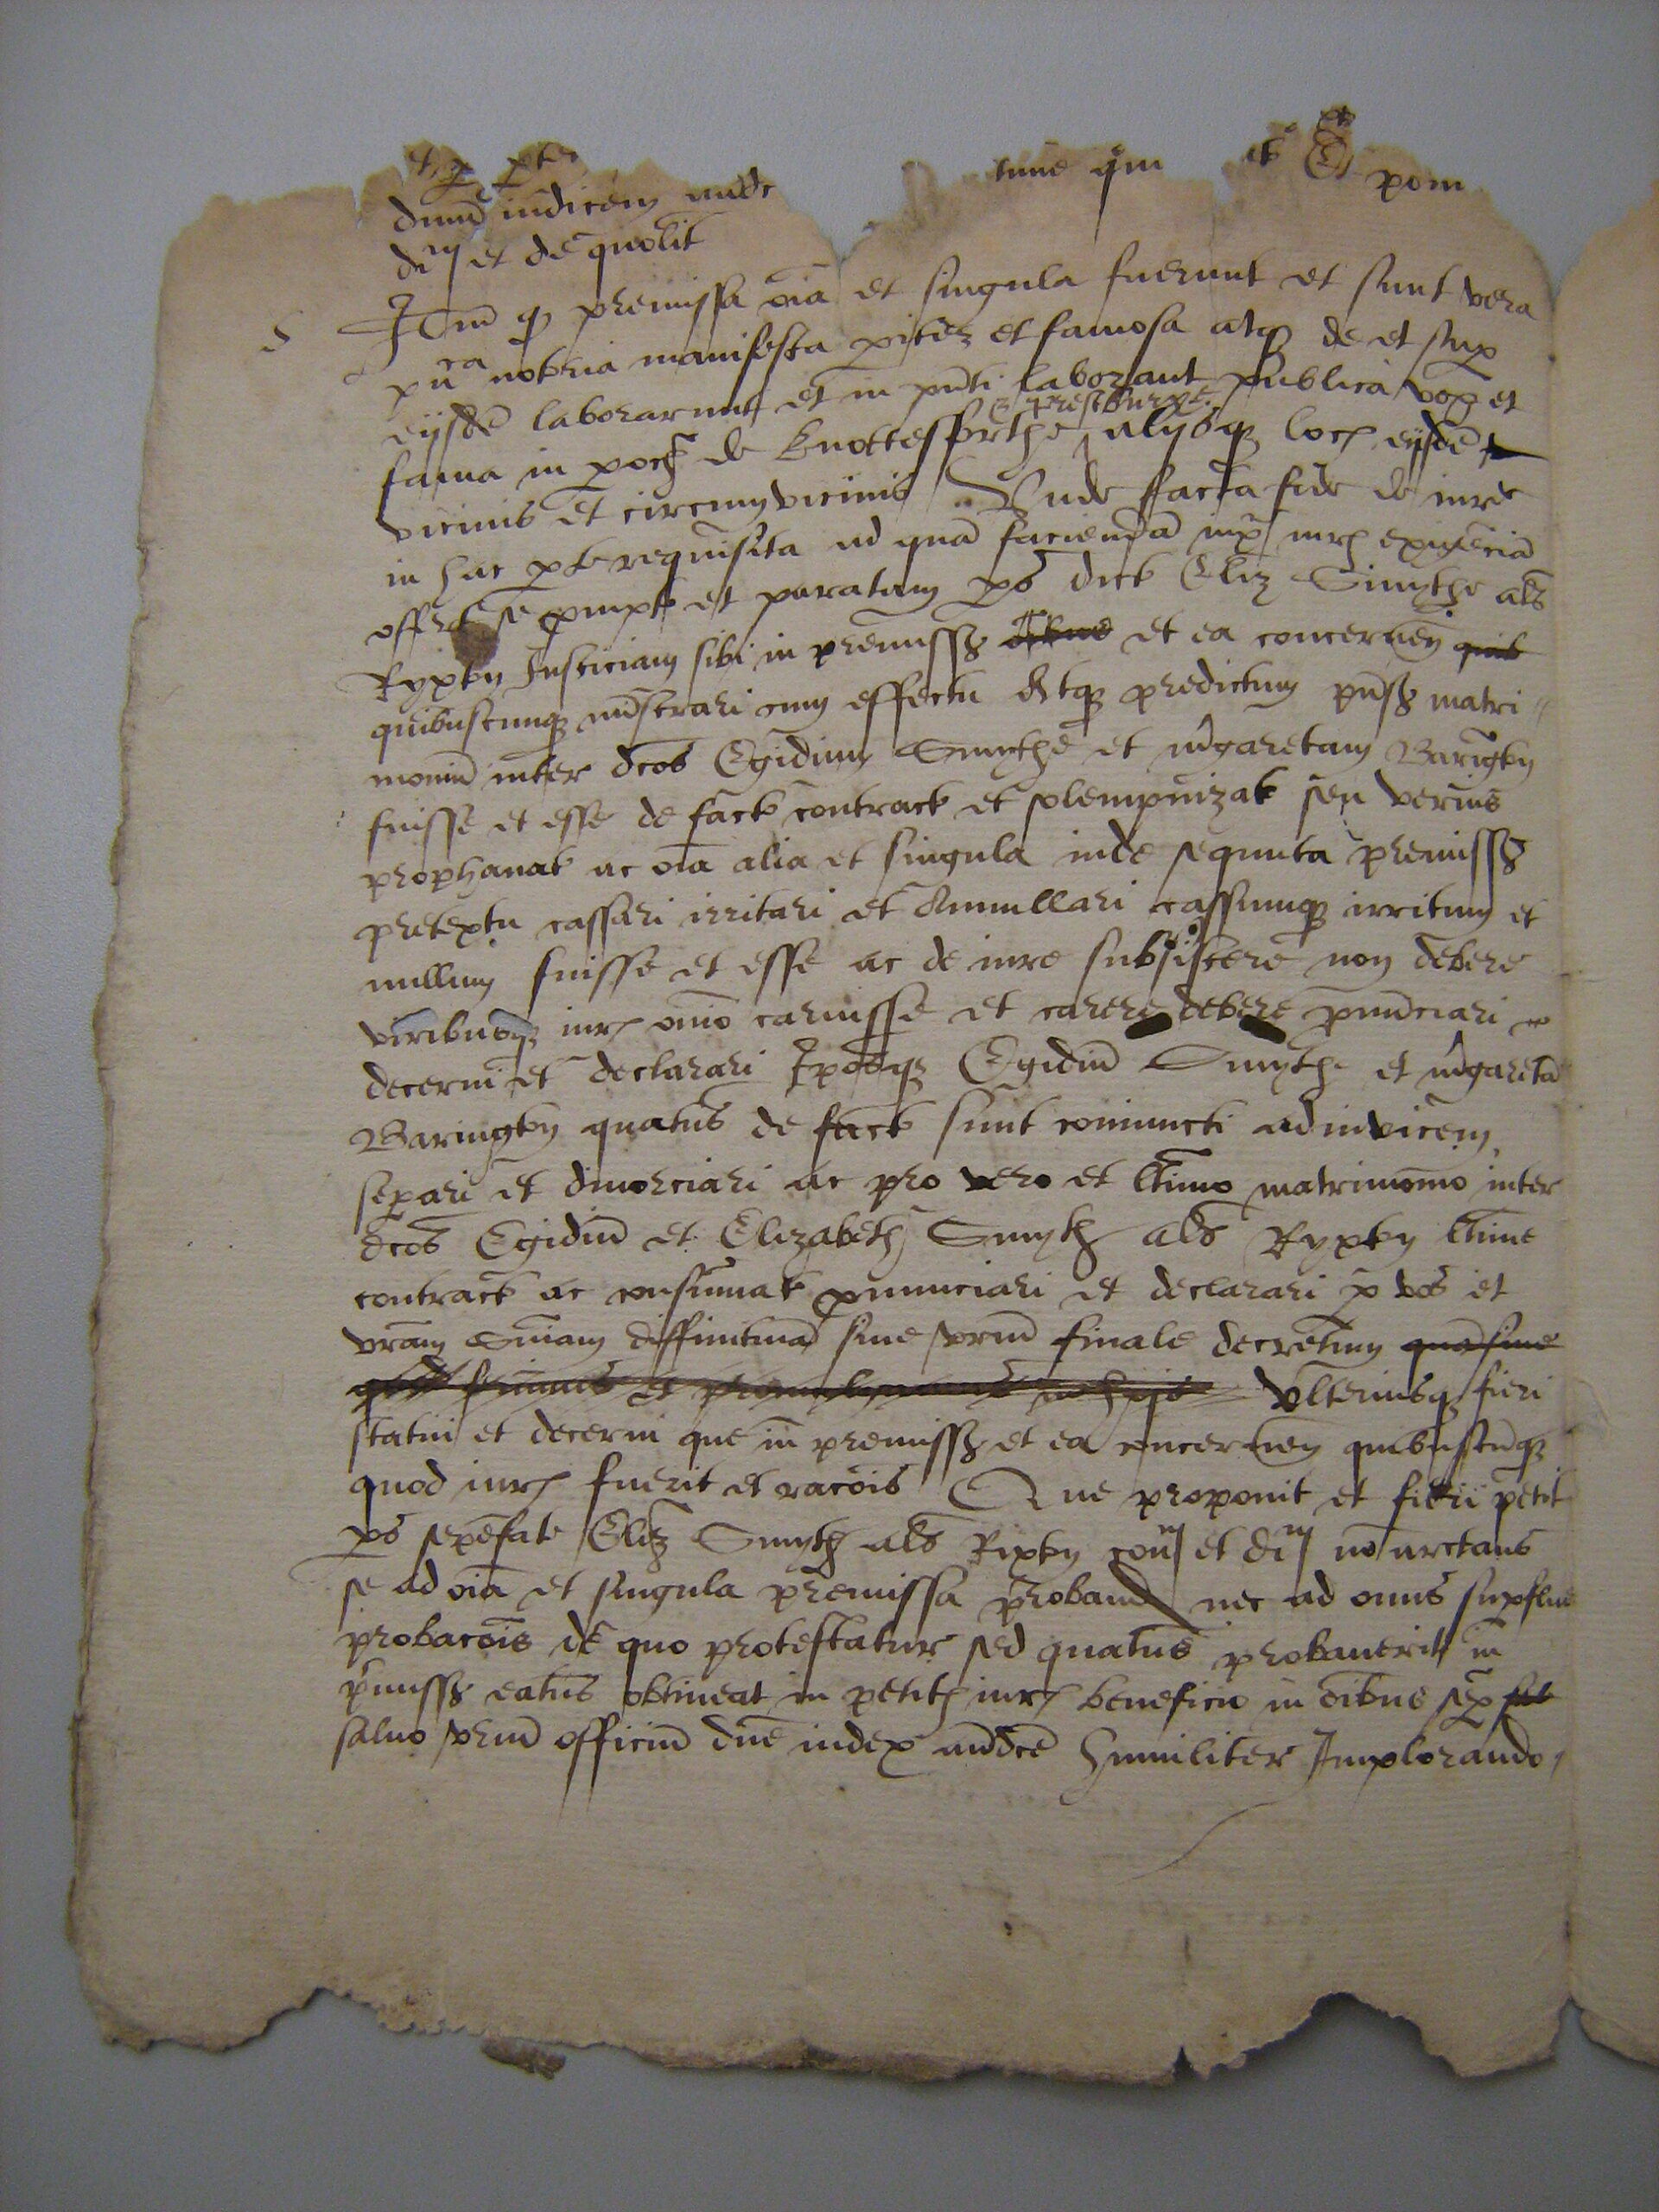 dnm iudicem unde
di et de quolit
Itm qd premissa oia et singula fuerunt et sunt vera
pu ca notoria manifesta pitez et famosa atqz de et sup
eijsde laborarunt et in pnti laborant publica vox et
& prestburye
fama in poch de Knottesforthe alijsqz loc eijsde
vicinis et circumvicinis Unde facta fide de iure
in hac pte requisita ad qua facienda iux iur exigencia
offert se prompt et paratam ps dict Eliz Smythe als
Rypton Justiciam sibi in premissz et ea concernen quib
quibuscunqz mistrari cum effectu Atqz predictum pnsz matri
moniu inter dcos Egidium Smythe et mgaretam Baringto
fuisse et esse de fact contract et solempnizat seu verius
prophanat ac oia alia et singula inde sequuta premissz
pretextu cassari irritari et Annullari cassumqz irritum et
nullum fuisse et esse ac de iure subsistere non debere
viribusqz iur omo caruisse et carere debere pnunciari
decerni et declarari Iposqz Egidiu Smythe et mgareta
Baringto quatus de fact sunt coniuncti adinvicem
separi et divorciari ac pro vero et ltimo matrimonio inter
dcos Egidiu et Elizabeth Smyth als Rypton ltime
contract ac consumat pnunciari et declarari p vos et
vram Sniam diffinitiva sive vrum finale decretum qua sive
Ulteriusqz fieri
statui et decerni que in premissz et ea concernen quibuscuqz
quod iur fuerit et racois Que proponit et fieri petit
ps sepefate Eliz Smyth als Ripton coni et di no arctans
se ad oia et singula premissa proband nec ad onus supflue
probacois de quo protestatur sed quatus probaverit in
pmissz eatus obtineat in petit iur beneficio in oibus sep
salvo vrum officiu dne iudex andce humiliter Implorando